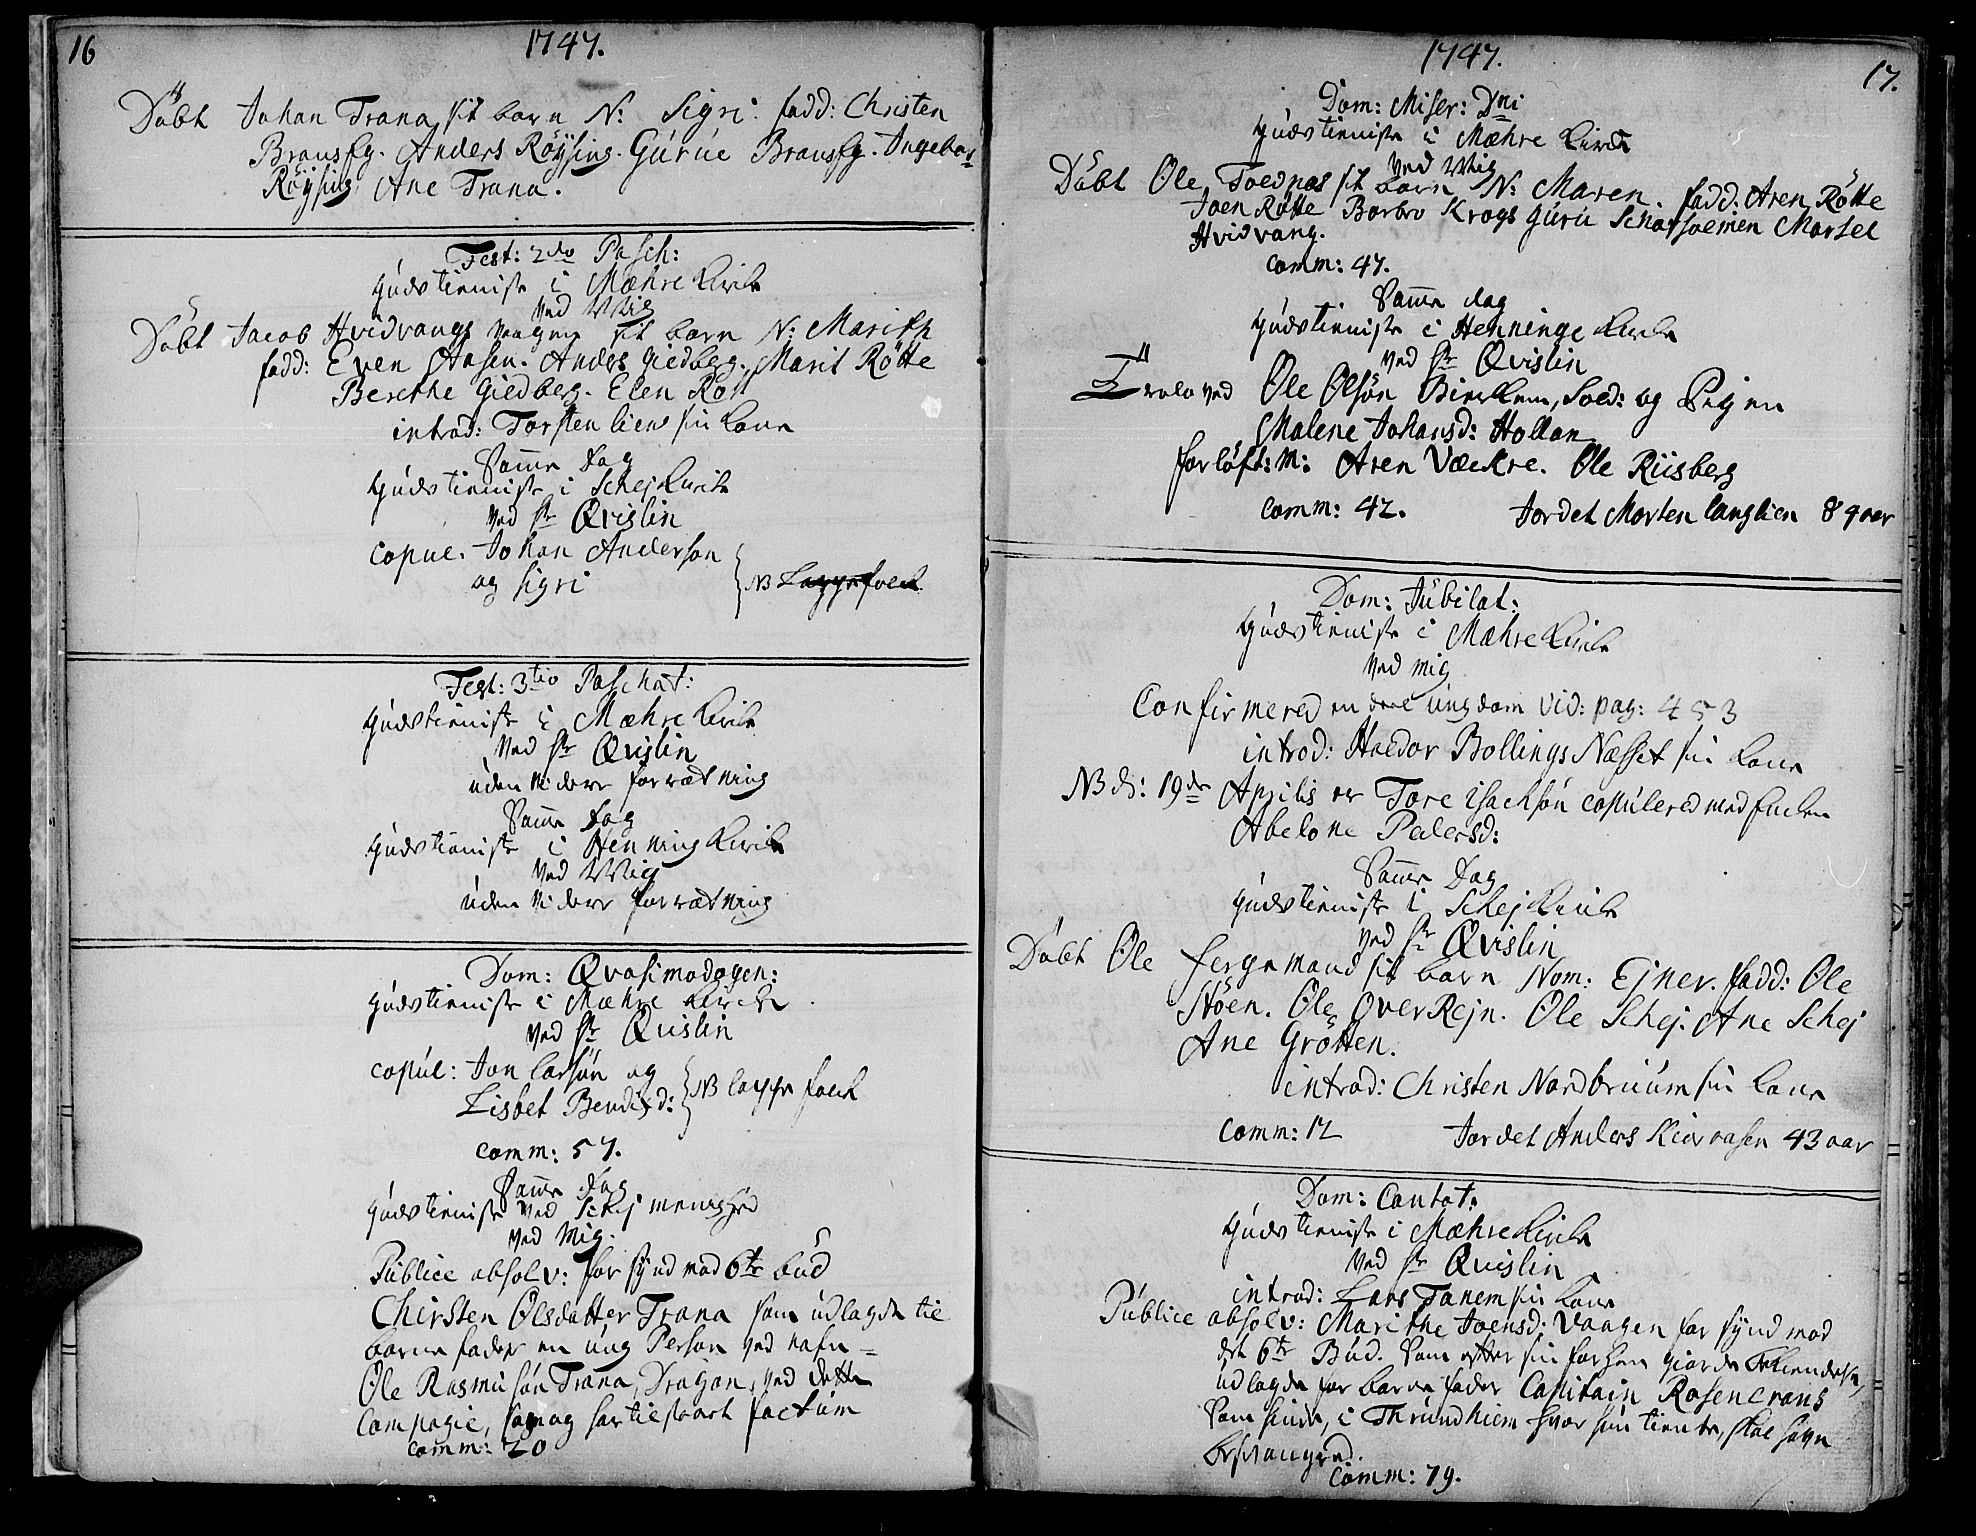 16
1747.
Döbt Johan Trana sit barn N: Sigri. fadd: Christen
Bransfg. Anders Röysing. Gurue Bransfg. Ingebor=
Röysing. Ane Trana.
Fest: 2do Pasch:
Gudstieniste i Mæhre Kirke
ved Mig
Döbt Jacob Hvidvangs Vaagen sit barn N: Marithe
fadd: Even Aasen. Anders Giedberg. Marit Rötte
Berethe Giedberg. Elen Röt
introd: Torsten Liens sin Kone
Samme Dag
Gudstieniste i Schej Kirke
ved Hr Qvislin
copul. Johan Anderson
og Sigri
NB Lappefolk
Fest: 3tio Paschat:
Gudstieniste i Mæhre Kirke
Ved Hr Qvislin
uden videre forrætning
Samme Dag
Gudstieniste i Henning Kirke
Ved Mig
uden videre forrætning
Dom: Qvasimodogen:
Gudstieniste i Mæhre Kirke
Ved Hr Quislin
copul: Jon Larsön og
Lisbet Bendixd:
NB Lappe folk
comm: 57.
Samme Dag
Gudstieniste ved Schej menighed
ved Mig.
Publice absolv: for synd mod 6te bud
Chirsten Olsdatter Trana som udlagde til
barne fader en ung Person ved nafn =
Ole Rasmusön Trana, Dragon, ved dette
Compagie, som og har tilstaaet factum
comm: 20
1747.
17.
Dom: Miser: Dni
Gudstieniste i Mæhre Kirke
ved Mig
Döbt Ole Toldnes sit barn N: Maren. fadd: Aren Rötte
Joen Rötte Barbro Krogs Guru Schatsoemen Marsel
Hvidvang.
comm: 47.
Samme dag
Gudstieniste i Henninge Kirke
ved Hr Qvislin
Troloved Ole Olsön Birkem, Sold: og Pigen
Malene Johansd: Hollan
forlöft: M: Aren Væckre. Ole Riisberg
comm: 42. Jordet Morten langlien 89 aar
Dom: Jubilat:
Gudstieniste i Mæhre Kirke
ved mig
Confirmered en deel ungdom vid: pag: 453
introd: Haldor Bollings Næsset sin Kone
NB d: 19de Aprilis er Tore Isachsön copulered med Enken
Abelone Pedersd:
Samme Dag
Gudstieniste i Schej Kirke
ved Hr Qvislin
Döbt Ole fergemand sit barn Nom: Ejner. fadd: Ole
Stöen. Ole Over Rejn. Ole Schej. Ane Schej
Ane Grötten.
introd: Christen Nordbruum sin Kone
comm: 12 Jordet Anders Kiernasen 43 aar
Dom: Cantat:
Gudstieniste i Mæhre Kirke
Ved Hr Quislin
introd: Lars Tanem sin Kone
Publice absolv: Marithe Joensd: Vaagen for synd mod
det 6te Bud. Som efter sin for ham giorde bekiendelse,
udlagde for barne fader Capitain Rosencrans
Som siden, i Thrundhiem hvor hun tiente, skal have
besvangred.
comm: 79.